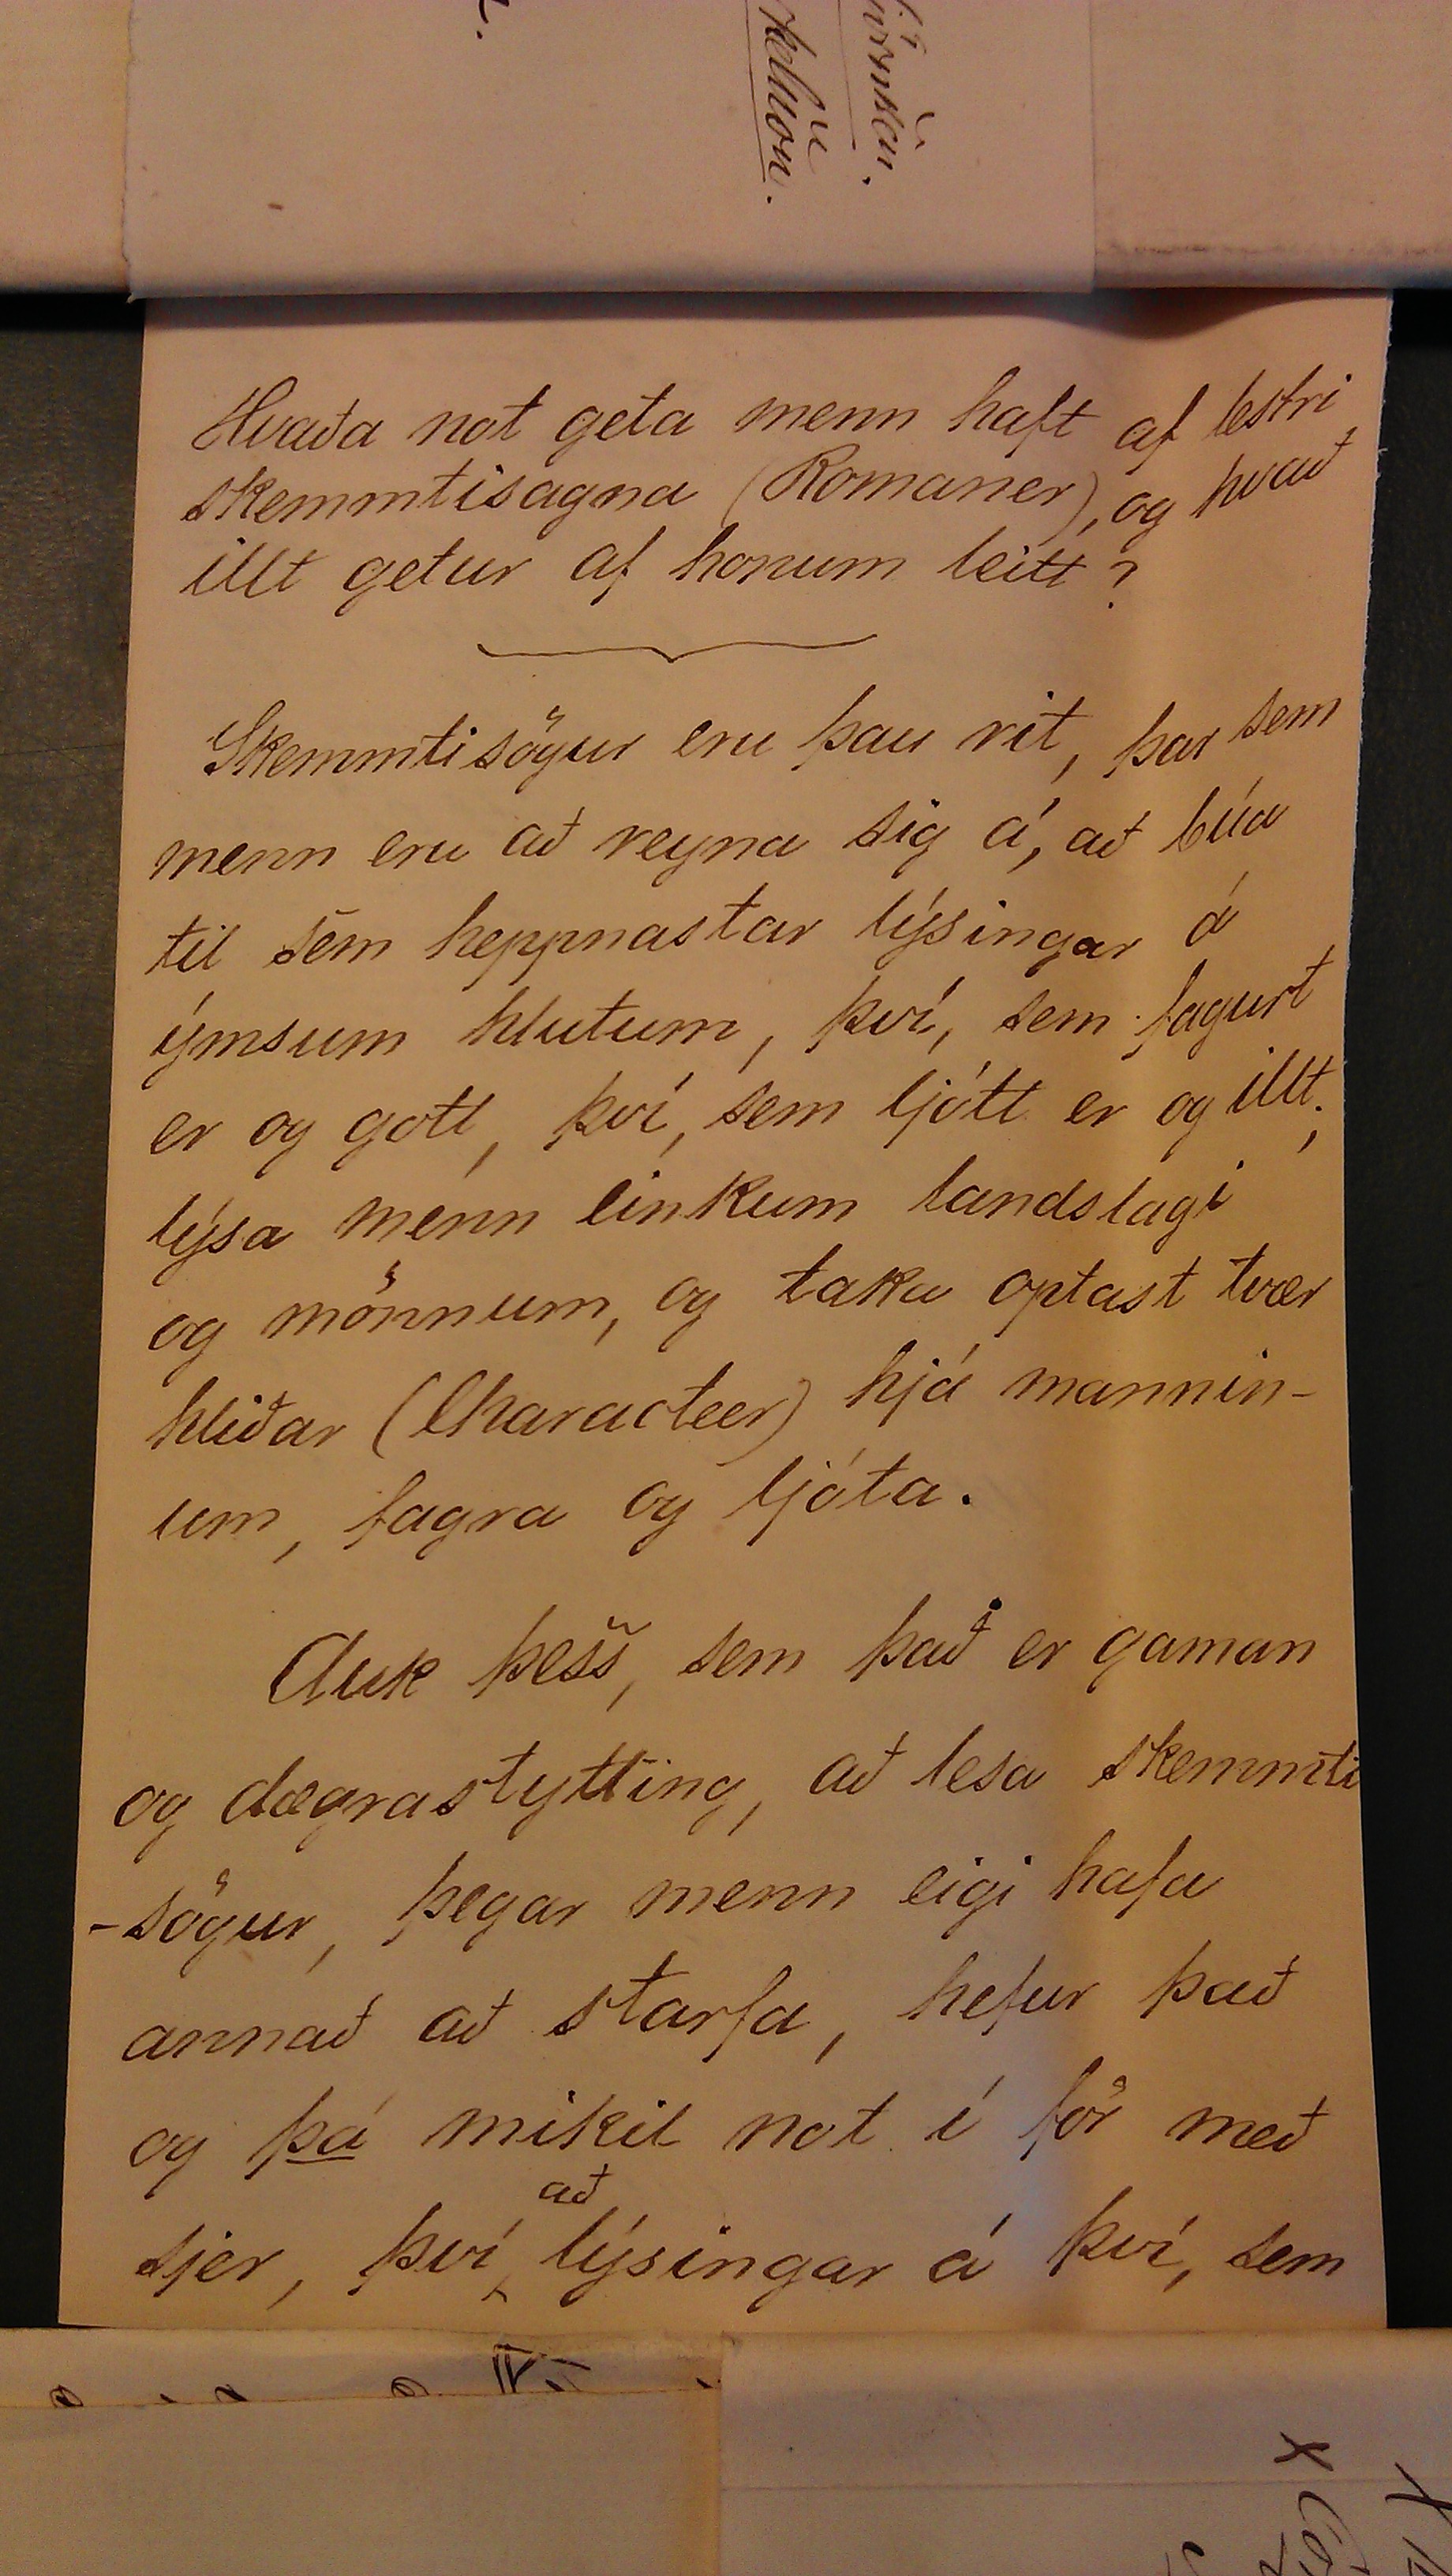 Hvaða not geta menn haft af lestri
skemmtisagna (Romaner), og hvað
illt getur af honum leitt?
Skemmtisögur eru þau rit, þar sem
menn eru að reyna sig á, að búa
til sem heppnastar lýsingar á
ýmsum hlutum, því, sem fagurt
er og gott, því, sem ljótt er og illt;
lýsa menn einkum landslagi
og mönnum, og taka optast tvær
hliðar (Characteer) hjá mannin-
um, fagra og ljóta.
Auk þess, sem það er gaman
og dægrastytting, að lesa skemmti
-sögur, þegar menn eigi hafa
annað að starfa, hefur það
og þá mikil not í för með
sjer, því að lýsingar á því, sem